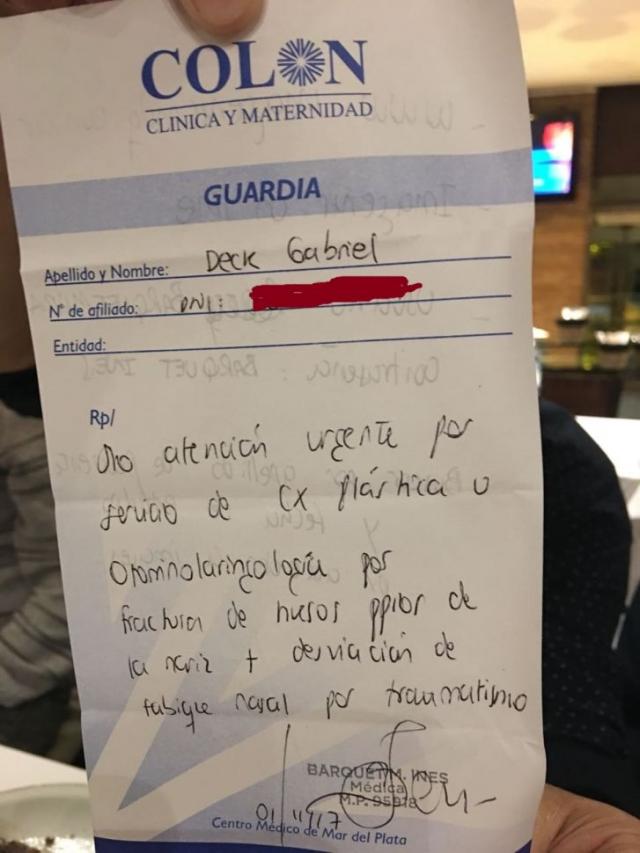 COLON
CLINICA Y MATERNIDAD
GUARDIA
Apellido y Nombre: Deck Gabriel
N° de afiliado: DNI:
Entidad:
Rp/
Sto atención urgente por
servicio de cx plástica u
Otorrinolaringología por
fractura de huesos ppios de
la nariz + desviación de
tabique nasal por traumatismo
BARQUET M. INES
Médica
M.P. 95918
01/11/17
Centro Médico de Mar del Plata